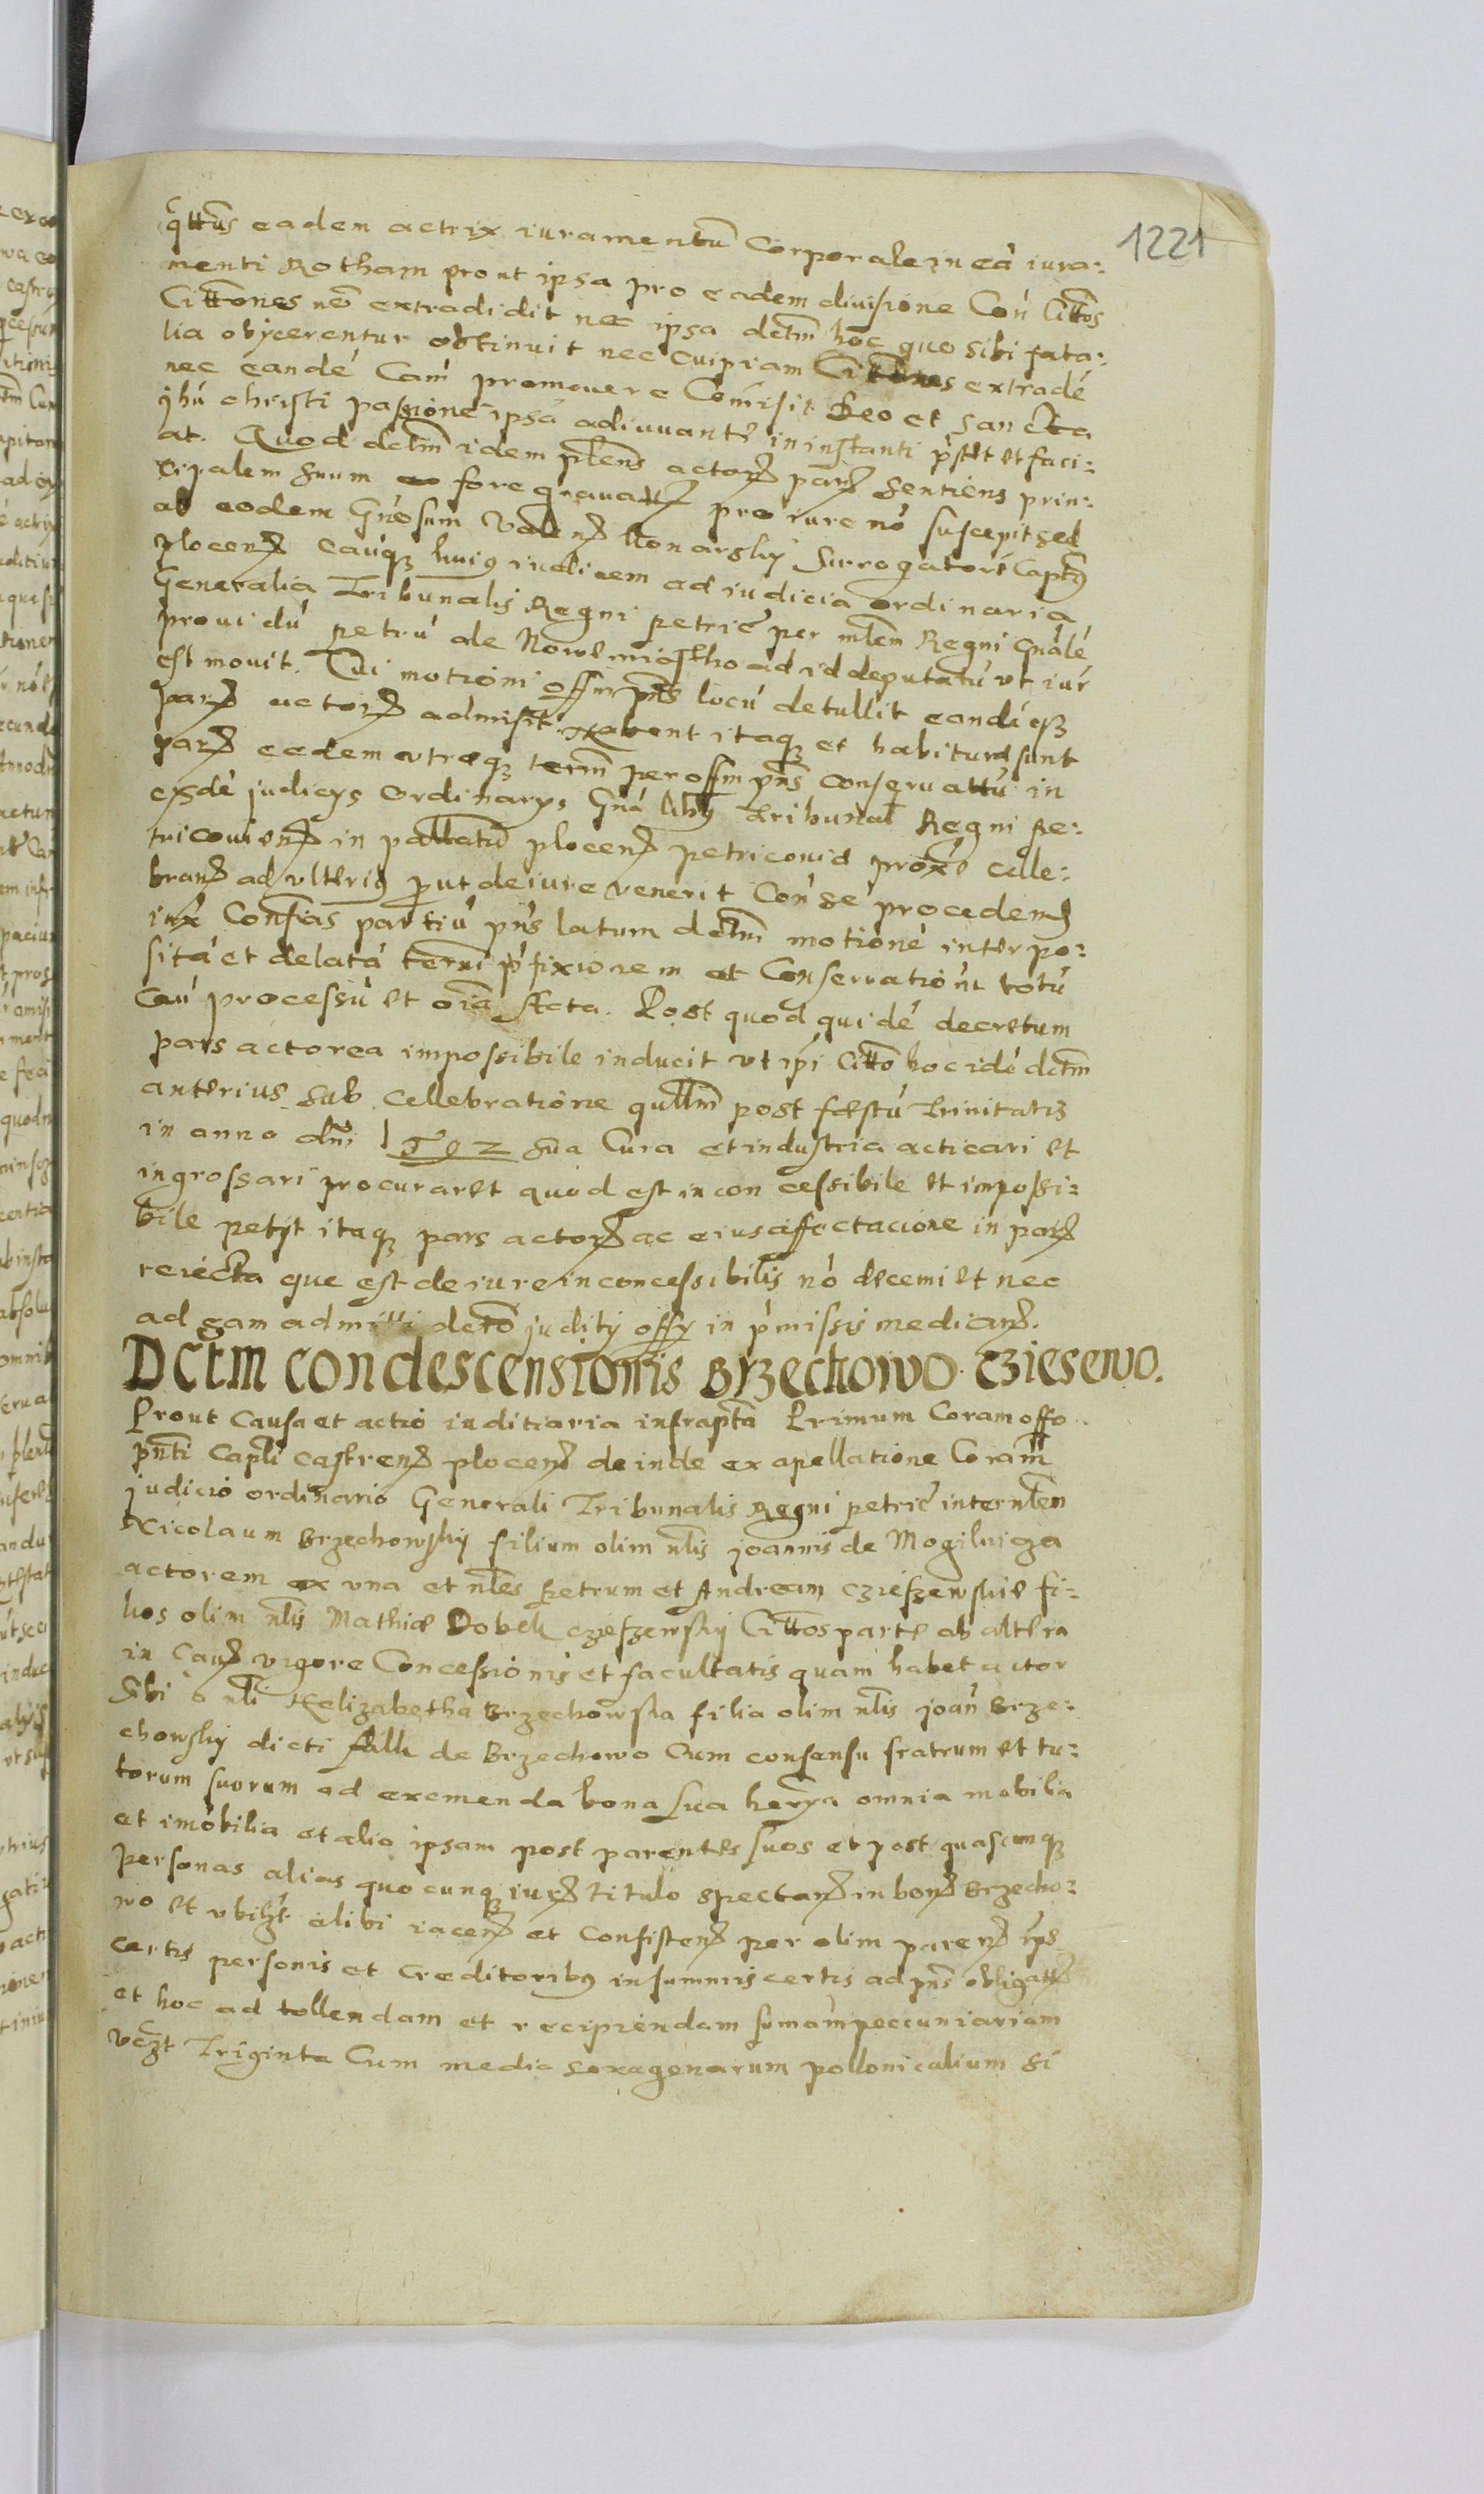 1221
qttus eadem actrix iuramentū Corporale in eā iura:
menti Rotham prout ipsa pro eadem diuisione Con Cittos
Cittones non extradidit nec ipsa dctm hoc quo sibi fata:
lia obycerentur obtinuit nec cuipiam Cittones extradē
nec eandē Cam promouere Comisit Deo et sancta
yhu christi passione ipsā adiuuante in instanti pstet et faci:
at. Quod dctm idem plens actor par sentiens prin:
cipalem suum fore grauatt pro iure nō suscepit sed
ab eodem Gnosum Valen Konarsky Surrogatorē Capt
plocen causq huiq iudicem ad iudicia ordinaria
Generalia Tribunalis Regni petric per mlem Regni Gnalē
prouidū petrū de Nowemiastho ad id deputatū vt iur
est mouit. Cui motioni offm pns locū detullit eandēqz
par actor admisit. Habent itaqz et habitura sunt
par eedem vtreqz term per offm pns conseruattū in
eisdē judicys Ordinarys Gna libq Tribunal Regni Pe:
tricouien in pallatū plocen petricouiē proxe celle:
bran ad vlteriq put de iure venerit Con se proceden
iux Confias partiū pns latum dctm motionē interpo:
sitā et delatā termi pfixionem et Conseruationē totū
caū processū et oia Acta. Post quod quidē decretum
pars actorea impossibile inducit vt ipi Citto hoc idē dctm
anterius sub cellebratione qullm post festū Trinitatis
in anno dni 1592 sua Cura et industria acticari et
ingrossari procuraret quod est inconcessibile et impossi:
bile petyt itaqz pars actor ac eius affectacione in par
reiecta que est de iure inconcessibilis nō decerni et nec
ad eam admitti dcro judity offy in pmissis median.
Dctm condescensionis Brzechowo Cziesewo.
Prout Causa et actio inditiaria infrapta Primum Coram offo
pnti Capli castren plocen deinde ex apellatione Coram
judicio ordinario Generali Tribunalis Regni petric inter nlem
Nicolaum Brzechowsky filium olim nlis joannis de Mogilnicza
actorem ex vna et nles Petrum et Andream Cziesewskie fi:
lios olim nlis Mathie Dobek czieszewsky Cittos parte ab altera
in Caus vigore Concessionis et facultatis quam habet actor
sibi a nli Helizabetha Brzechowska filia olim nlis joan Brze:
chowsky dicti falk de Brzechowo Cum consensu fratrum et tu:
torum suorum ad exemenda bona sua herya omnia mobilia
et imobilia et alia ipsam post parentes suos et post quascunqz
Personas alias quocunqz iur titulo spectan in bon Brzecho:
wo et vbilzt alibi iacen et Consisten per olim paren ips
certis personis et Creditoribq in summis certis ad pns obligatt
et hoc ad tollendam et recipiendam sumam peccuniariam
vczt Triginta Cum media sexagenarum pollonicalium si